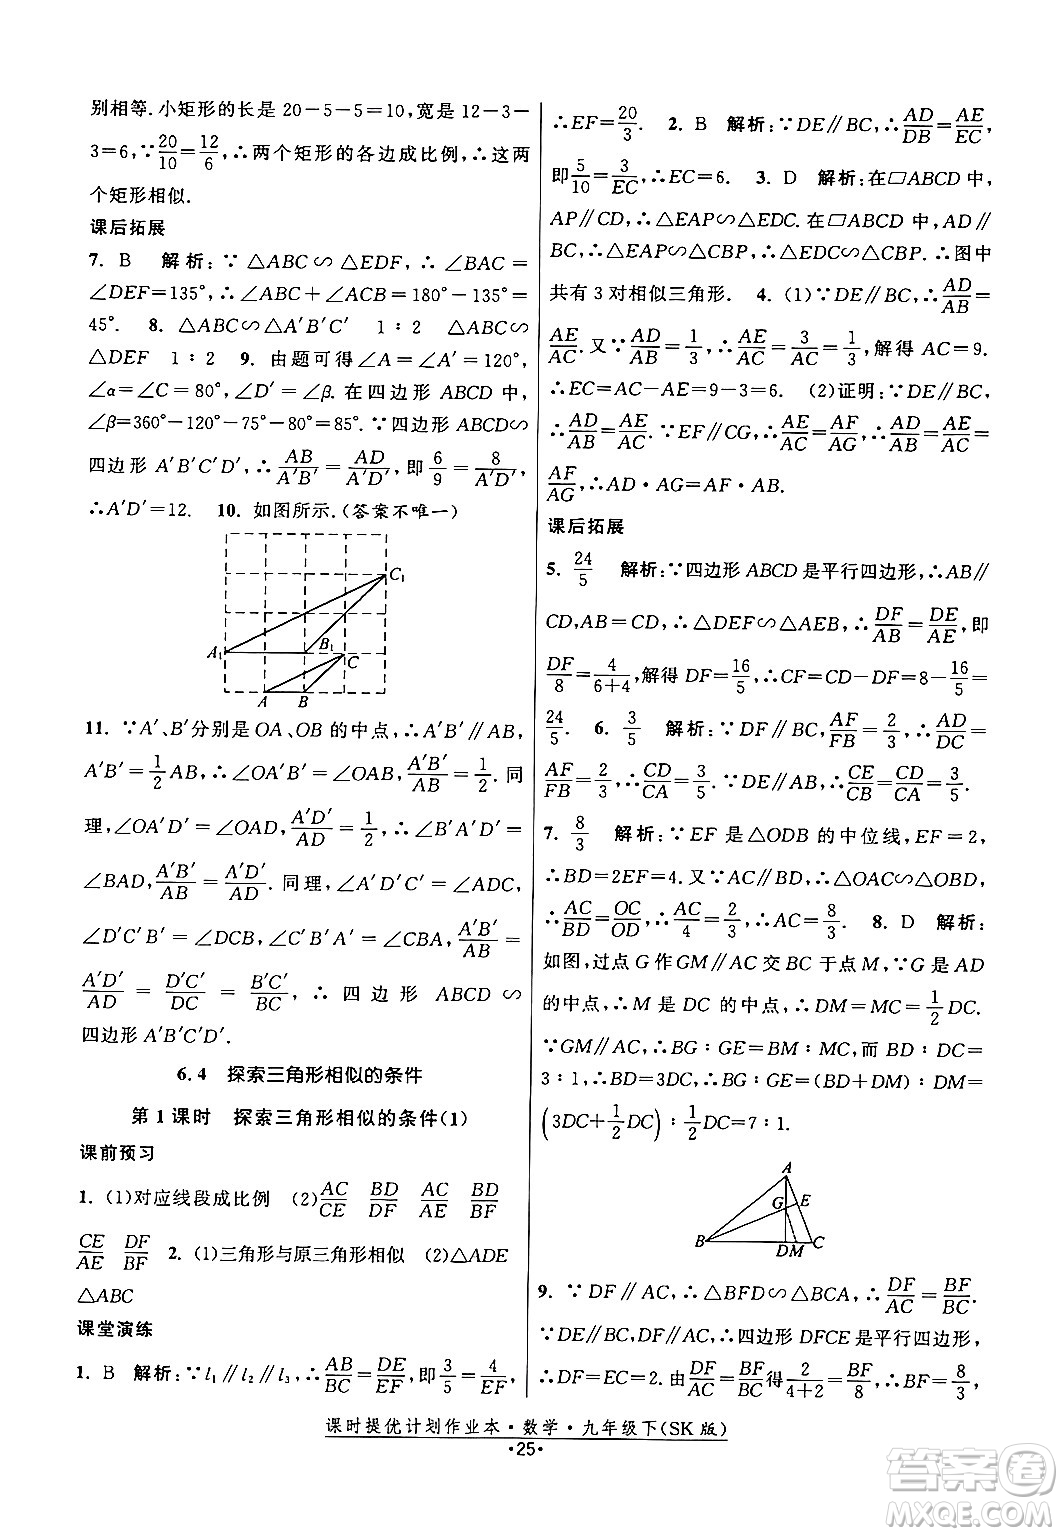 别相等.小矩形的长是20-5-5=10,宽是12-3-
3=6,∵20/10=12/6,∴两个矩形的各边成比例,∴这两
个矩形相似.
课后拓展
7. B 解析:∵△ABC∽△EDF,∴∠BAC=
∠DEF=135°,∴∠ABC+∠ACB=180°-135°=
45°. 8. △ABC∽△A′B′C′ 1∶2 △ABC∽
△DEF 1∶2 9. 由题可得∠A=∠A′=120°,
∠α=∠C=80°,∠D′=∠β.在四边形ABCD中,
∠β=360°-120°-75°-80°=85°.∵四边形ABCD∽
四边形A′B′C′D′,∴AB/A′B′=AD/A′D′,即6/9=8/A′D′,
∴A′D′=12. 10. 如图所示.(答案不唯一)
C₁
A₁ B₁ C
A B
11. ∵A′、B′分别是OA、OB的中点,∴A′B′∥AB,
A′B′=1/2AB,∴∠OA′B′=∠OAB,A′B′/AB=1/2.同
理,∠OA′D′=∠OAD,A′D′/AD=1/2,∴∠B′A′D′=
∠BAD,A′B′/AB=A′D′/AD.同理,∠A′B′C′=∠ABC,
∠D′C′B′=∠DCB,∠C′B′A′=∠CBA,A′B′/AB=
A′D′/AD=D′C′/DC=B′C′/BC,∴四边形ABCD∽
四边形A′B′C′D′.
6.4 探索三角形相似的条件
第1课时 探索三角形相似的条件(1)
课前预习
1. (1)对应线段成比例 (2)AC/CE BD/DF AC/AE BD/BF
CE/AE DF/BF 2. (1)三角形与原三角形相似 (2)△ADE
△ABC
课堂演练
1. B 解析:∵l₁∥l₂∥l₃,∴AB/BC=DE/EF,即3/5=4/EF,
∴EF=20/3. 2. B 解析:∵DE∥BC,∴AD/DB=AE/EC,
即5/10=3/EC,∴EC=6. 3. D 解析:在▱ABCD中,
AP∥CD,∴△EAP∽△EDC.在▱ABCD中,AD∥
BC,∴△EAP∽△CBP,∴△EDC∽△CBP.∴图中
共有3对相似三角形. 4. (1)∵DE∥BC,∴AD/AB=
AE/AC.又∵AD/AB=1/3,∴AE/AC=3/AC=1/3,解得AC=9.
∴EC=AC-AE=9-3=6. (2)证明:∵DE∥BC,
∴AD/AB=AE/AC.∵EF∥CG,∴AE/AC=AF/AG,∴AD/AB=
AF/AG,∴AD·AG=AF·AB.
课后拓展
5. 24/5 解析:∵四边形ABCD是平行四边形,∴AB∥
CD,AB=CD,∴△DEF∽△AEB,∴DF/AB=DE/AE,即
DF/8=4/(6+4),解得DF=16/5,∴CF=CD-DF=8-16/5=
24/5. 6. 3/5 解析:∵DF∥BC,AF/FB=2/3,∴AD/DC=
AF/FB=2/3,∴CD/CA=3/5.∵DE∥AB,∴CE/CB=CD/CA=3/5.
7. 8/3 解析:∵EF是△ODB的中位线,EF=2,
∴BD=2EF=4.又∵AC∥BD,∴△OAC∽△OBD,
∴AC/BD=OC/OD,∴AC/4=2/3,∴AC=8/3. 8. D 解析:
如图,过点G作GM∥AC交BC于点M,∵G是AD
的中点,∴M是DC的中点,∴DM=MC=1/2DC.
∵GM∥AC,∴BG∶GE=BM∶MC,而BD∶DC=
3∶1,∴BD=3DC,∴BG∶GE=(BD+DM)∶MC=
(3DC+1/2DC)∶1/2DC=7∶1.
A
G E
B DM C
9. ∵DF∥AC,∴△BFD∽△BCA,∴DF/AC=BF/BC.
∵DE∥BC,DF∥AC,∴四边形DFCE是平行四边形,
∴DF=EC=2.由DF/AC=BF/BC得2/(4+2)=BF/8,∴BF=8/3,
课时提优计划作业本·数学·九年级下(SK版)
·25·
答案圈
MXQE.COM